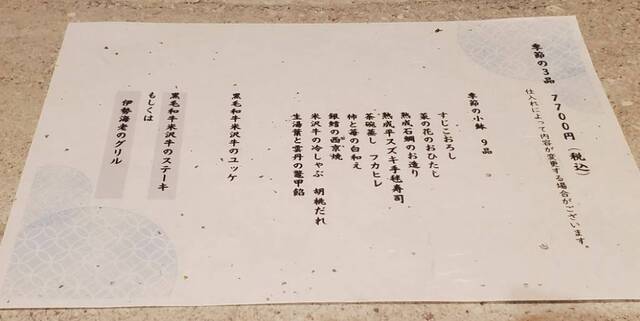 季節の3品 7700円（税込）
仕入れによって内容が変更する場合がございます。
季節の小鉢 9品
すじこおろし
菜の花のおひたし
熟成石鯛のお造り
熟成平スズキ手毬寿司
茶碗蒸し フカヒレ
柿と苺の白和え
銀鱈の西京焼
米沢牛の冷しゃぶ 胡桃だれ
生湯葉と雲丹の鼈甲餡
黒毛和牛米沢牛のユッケ
黒毛和牛米沢牛のステーキ
もしくは
伊勢海老のグリル